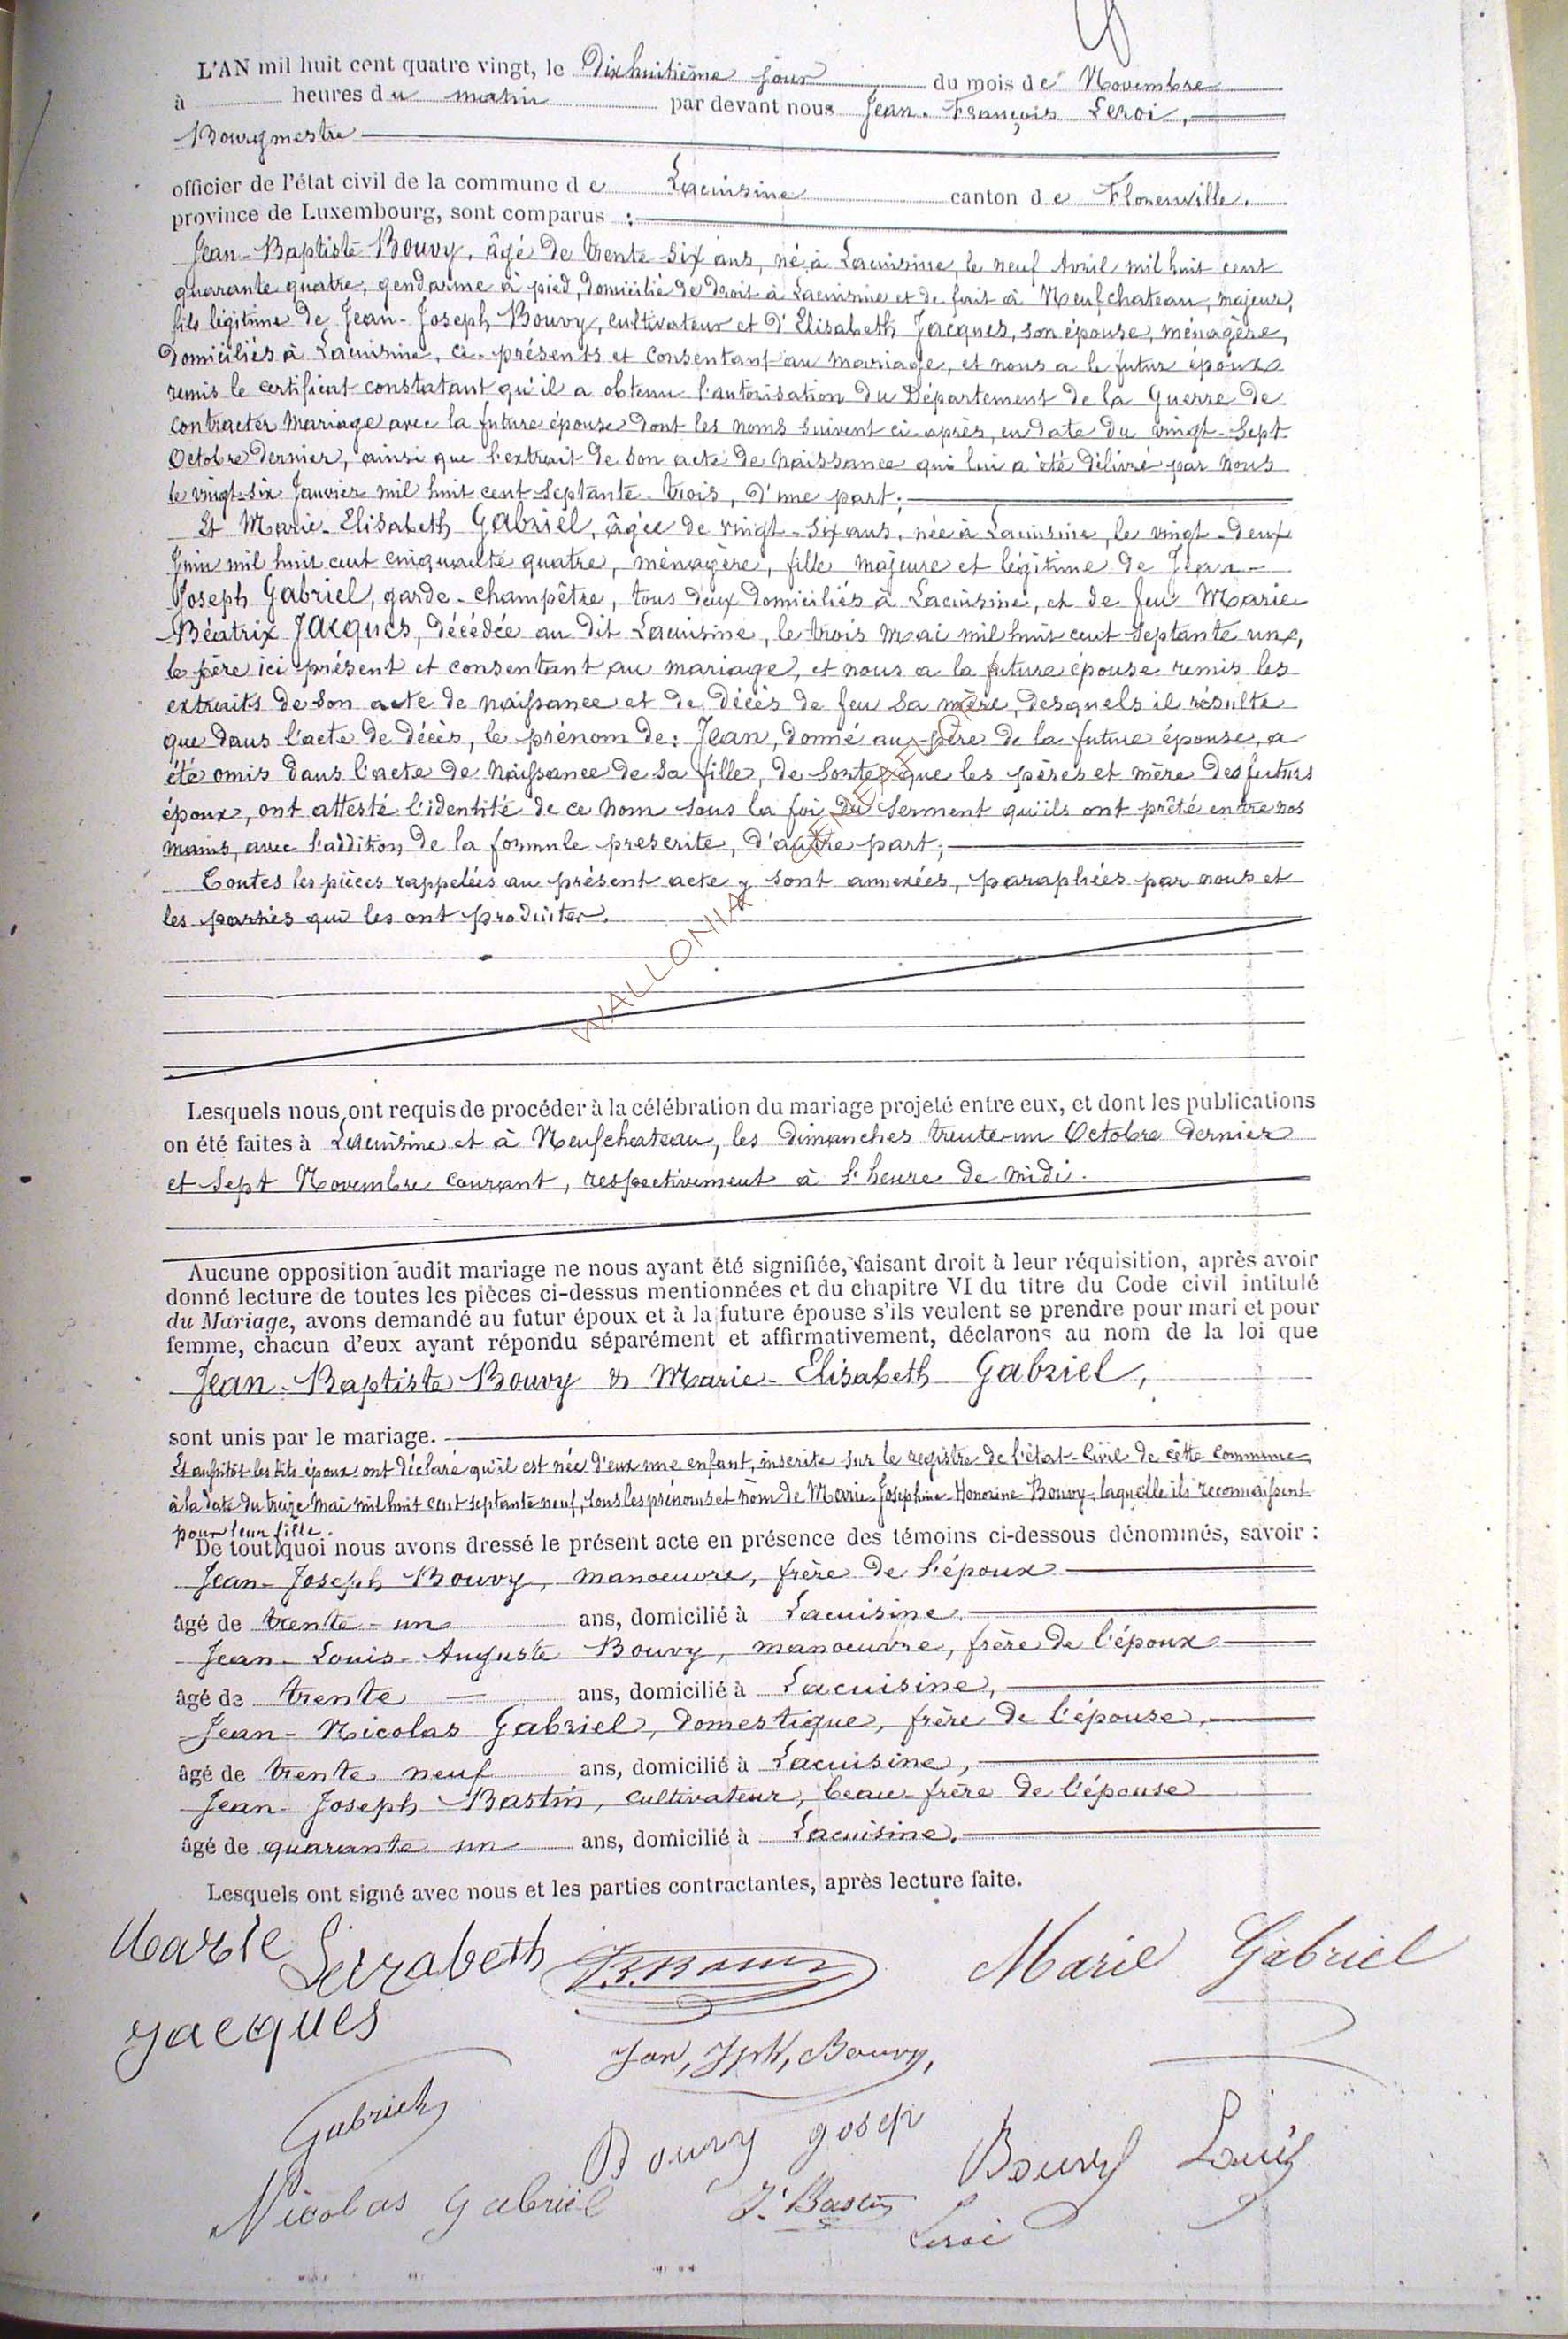 L'AN mil huit cent quatre vingt, le Dixhuitième jour du mois de Novembre
à heures du matin par devant nous Jean-François Leroi,
Bourgmestre
officier de l'état civil de la commune de Lacuisine canton de Florenville.
province de Luxembourg, sont comparus :
Jean-Baptiste Bouvy, âgé de trente-six ans, né à Lacuisine, le neuf Avril mil huit cent
quarante quatre, gendarme à pied, domicilié de droit à Lacuisine et de fait à Neufchateau, majeur,
fils légitime de Jean-Joseph Bouvy, cultivateur et d'Elisabeth Jacques, son épouse, ménagère,
domiciliés à Lacuisine, ci-présents et consentant au mariage, et nous a le futur époux
remis le certificat constatant qu'il a obtenu l'autorisation du Département de la Guerre de
contracter mariage avec la future épouse dont les noms suivent ci-après, en date du vingt-sept
Octobre dernier, ainsi que l'extrait de son acte de naissance qui lui a été délivré par nous
le vingt-six Janvier mil huit cent septante-trois, d'une part;
Et Marie-Elisabeth Gabriel, âgée de vingt-six ans, née à Lacuisine, le vingt-deux
Juin mil huit cent cinquante quatre, ménagère, fille majeure et légitime de Jean-
Joseph Gabriel, garde-champêtre, tous deux domiciliés à Lacuisine, et de feu Marie
Béatrix Jacques, décédée au dit Lacuisine, le trois Mai mil huit cent septante un,
le père ici présent et consentant au mariage, et nous a la future épouse remis les
extraits de son acte de naissance et de décès de feu sa mère, desquels il résulte
que dans l'acte de décès, le prénom de: Jean, donné au père de la future épouse, a
été omis dans l'acte de naissance de sa fille, de sorte que les pères et mère des futurs
époux, ont attesté l'identité de ce nom sous la foi du serment qu'ils ont prêté entre nos
mains, avec l'addition de la formule prescrite, d'autre part;
Toutes les pièces rappelées au présent acte y sont annexées, paraphées par nous et
les parties qui les ont produites.
WALLONIA
Lesquels nous ont requis de procéder à la célébration du mariage projeté entre eux, et dont les publications
on été faites à Lacuisine et à Neufchateau, les dimanches trente-un Octobre dernier
et sept Novembre courant, respectivement à l'heure de midi.
Aucune opposition audit mariage ne nous ayant été signifiée, faisant droit à leur réquisition, après avoir
donné lecture de toutes les pièces ci-dessus mentionnées et du chapitre VI du titre du Code civil intitulé
du Mariage, avons demandé au futur époux et à la future épouse s'ils veulent se prendre pour mari et pour
femme, chacun d'eux ayant répondu séparément et affirmativement, déclarons au nom de la loi que
Jean-Baptiste Bouvy & Marie-Elisabeth Gabriel,
sont unis par le mariage.
Et aussitôt les dits époux ont déclaré qu'il est née d'eux une enfant, inscrite sur le registre de l'état-civil de cette commune
à la date du treize Mai mil huit cent septante neuf, sous les prénoms et nom de Marie Josephine Honorine Bouvy, laquelle ils reconnaissent
pour leur fille.
De tout quoi nous avons dressé le présent acte en présence des témoins ci-dessous dénommés, savoir :
Jean-Joseph Bouvy, manoeuvre, frère de l'époux
âgé de trente-un ans, domicilié à Lacuisine.
Jean-Louis-Auguste Bouvy, manoeuvre, frère de l'époux
âgé de trente ans, domicilié à Lacuisine,
Jean-Nicolas Gabriel, domestique, frère de l'épouse,
âgé de trente neuf ans, domicilié à Lacuisine,
Jean-Joseph Bastin, cultivateur, beau-frère de l'épouse
âgé de quarante un ans, domicilié à Lacuisine.
Lesquels ont signé avec nous et les parties contractantes, après lecture faite.
Marie Leizabeth J.B. Bouvy Marie Gabriel
Jacques
Jan, Jph, Bouvy,
Gabriel
Bouvy Josep Bouvy Louis
Nicolas Gabriel J. Bastin
Leroi